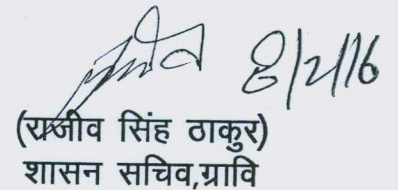 8/2/16
(राजीव सिंह ठाकुर)
शासन सचिव,ग्रावि